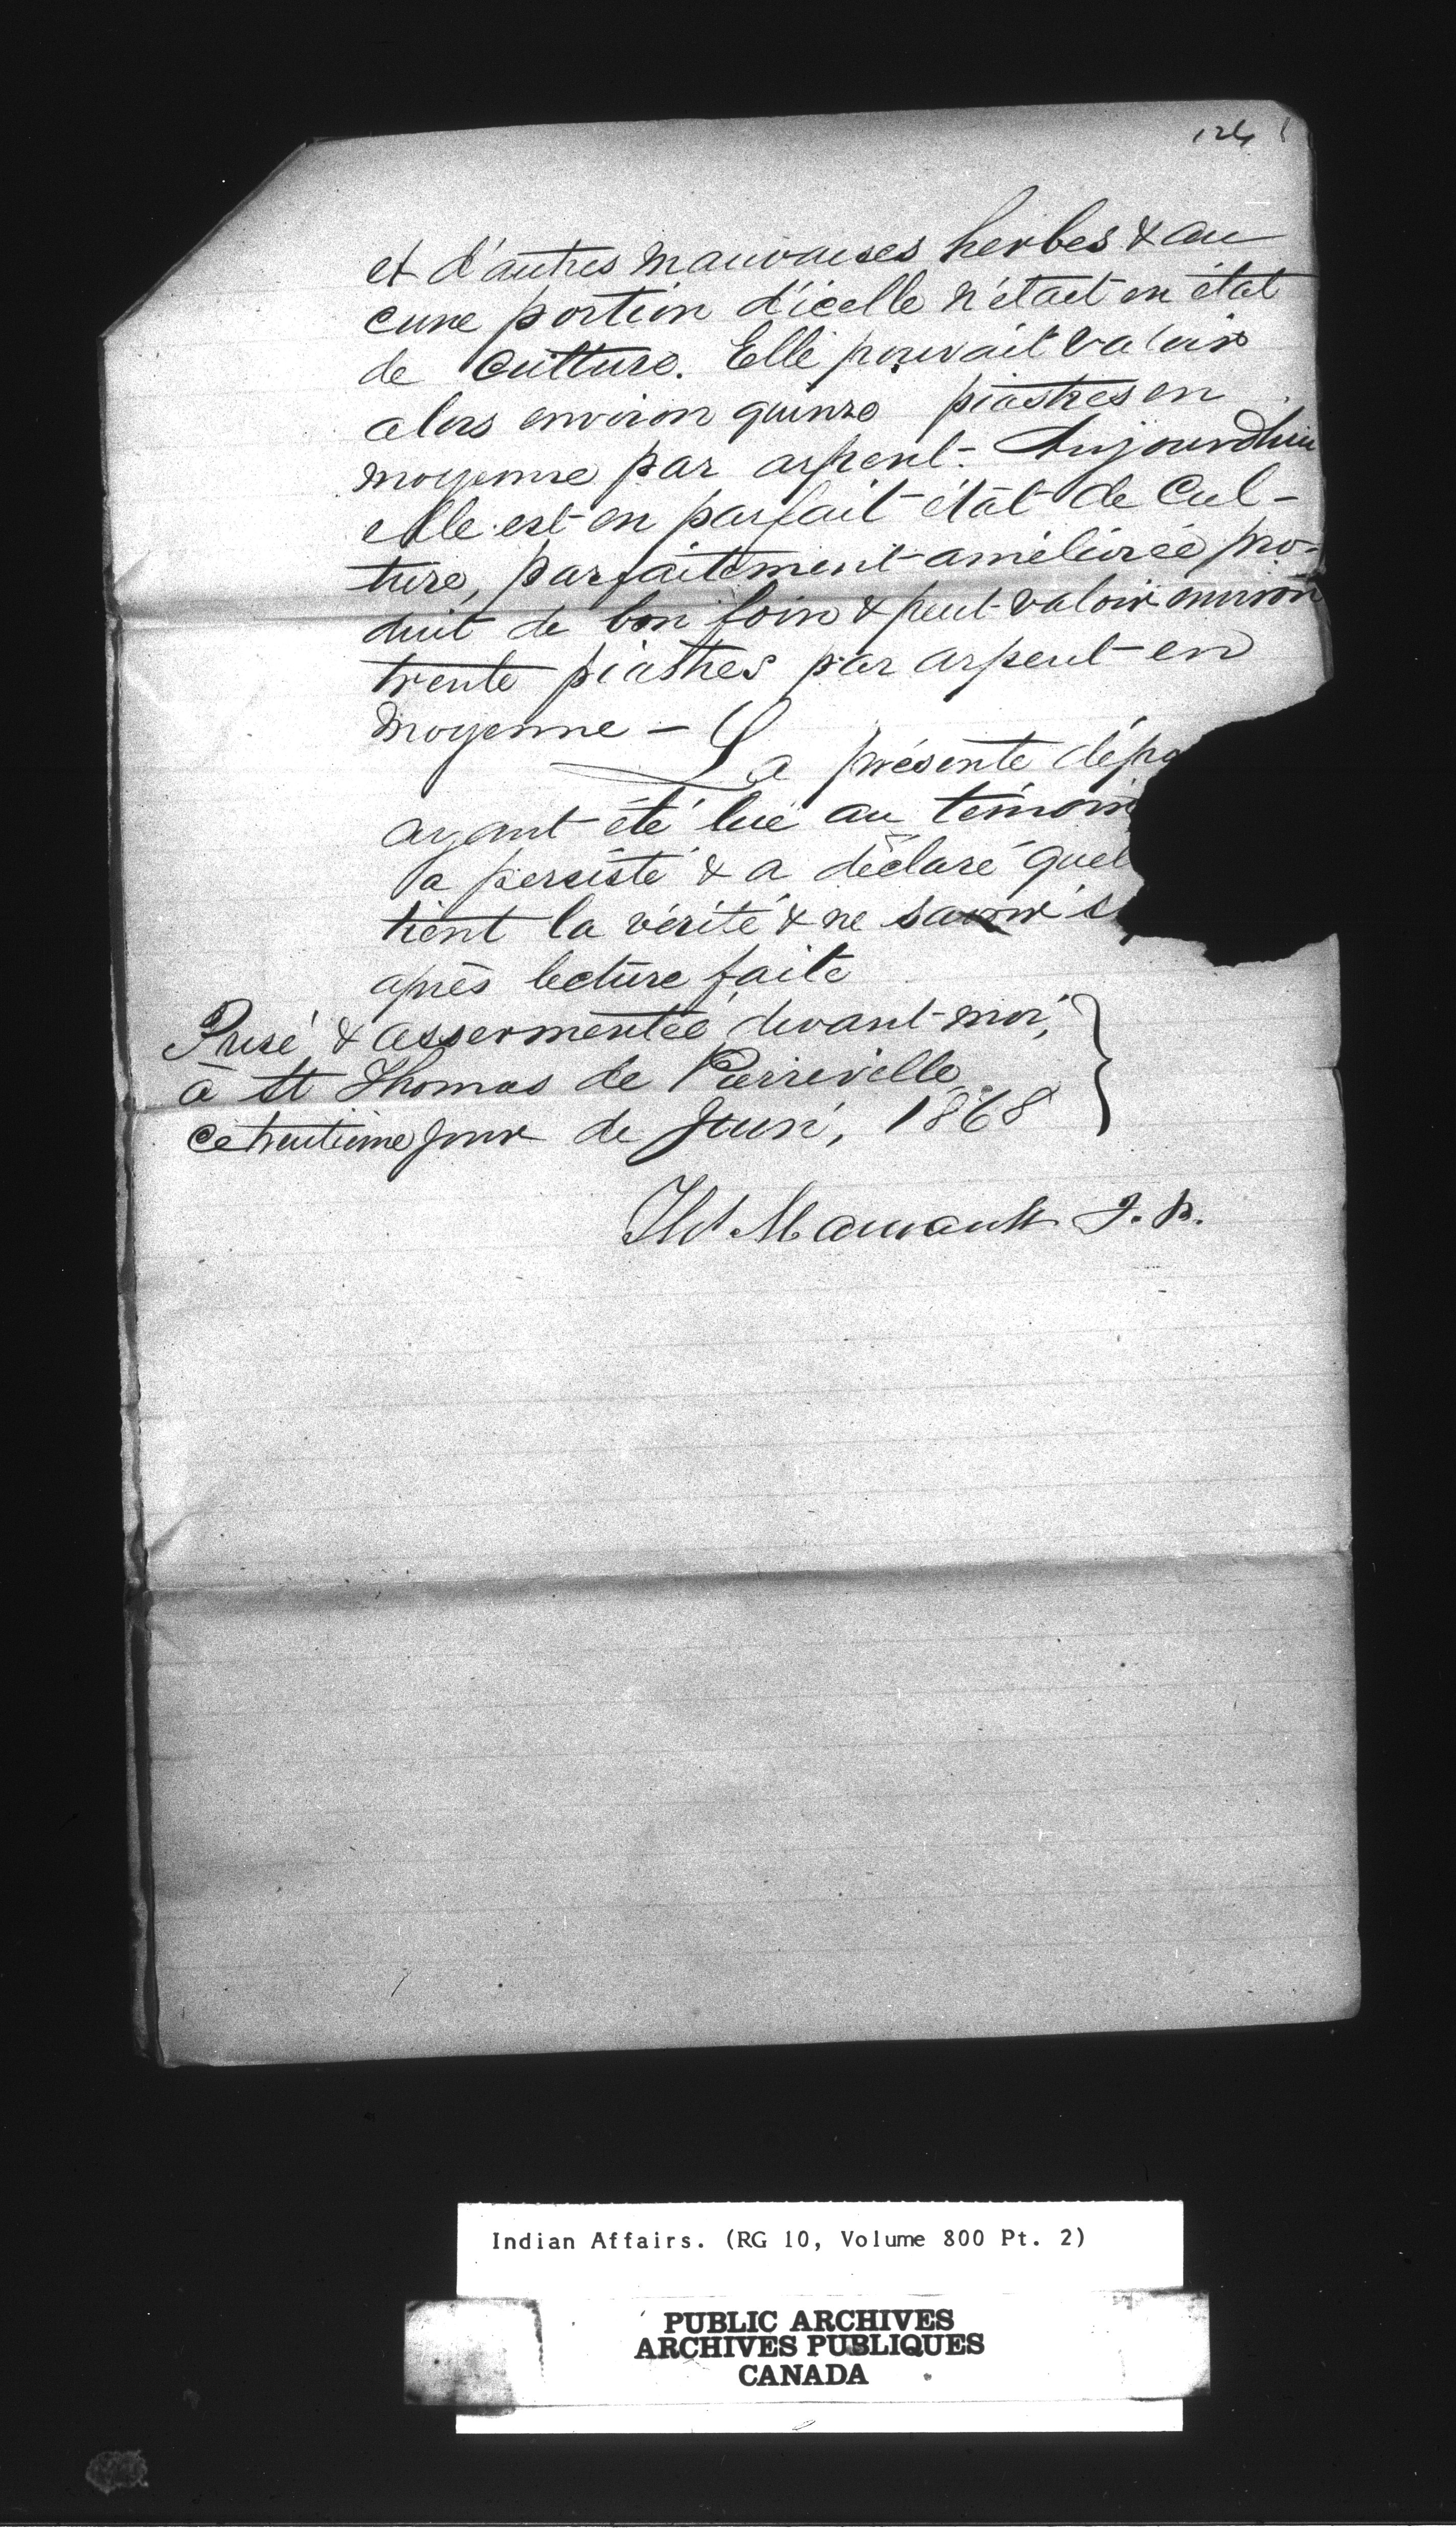 124
et d'autres mauvaises herbes & au
cune portion d'icelle n'était en état
de culture. Elle pouvait valoir
alors environ quinze piastres en
moyenne par arpent. Aujourdhui
elle est en parfait état de Cul-
ture, parfaitement améliorée pro-
duit de bon foin & peut valoir environ
trente piastres par arpent en
moyenne - La présente dépo
ayant été lue au témoin
a persisté & a déclaré quel
tient la vérité & ne savoir s
après lecture faite
Prise & assermentée devant moi,
à St Thomas de Pierreville
ce huitième jour de Juin, 1868
Ths Maurault J. P.
Indian Affairs. (RG 10, Volume 800 Pt. 2)
PUBLIC ARCHIVES
ARCHIVES PUBLIQUES
CANADA